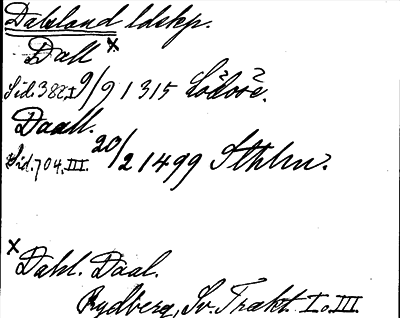 Dalsland ldskp.
Dall x
Sid. 382 I 9/9 1315 Lödöse.
Daall.
Sid. 704. III. 20/2 1499 Sthlm.
x Dahl. Daal.
Rydberg, Sv. Trakt. I o. III.